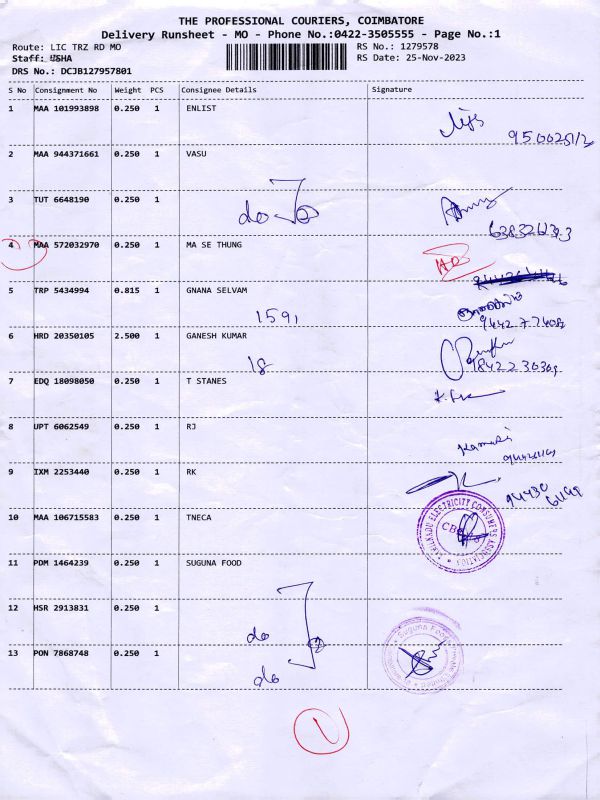 THE PROFESSIONAL COURIERS, COIMBATORE
Delivery Runsheet - MO - Phone No.:0422-3505555 - Page No.:1
Route: LIC TRZ RD MO RS No.: 1279578
Staff: USHA RS Date: 25-Nov-2023
DRS No.: DCJB127957801
S No Consignment No Weight PCS Consignee Details Signature
1 MAA 101993898 0.250 1 ENLIST
2 MAA 944371661 0.250 1 VASU
3 TUT 6648190 0.250 1
do
4 MAA 572032970 0.250 1 MA SE THUNG
5 TRP 5434994 0.815 1 GNANA SELVAM
1591
6 HRD 20350105 2.500 1 GANESH KUMAR
18
7 EDQ 18098050 0.250 1 T STANES
8 UPT 6062549 0.250 1 RJ
9 IXM 2253440 0.250 1 RK
10 MAA 106715583 0.250 1 TNECA
TAMILNADU ELECTRICITY CONSUMERS ASSOCIATION
CBE
11 PDM 1464239 0.250 1 SUGUNA FOOD
12 HSR 2913831 0.250 1
do
13 PON 7868748 0.250 1
do
Suguna Foods Private Limited
1